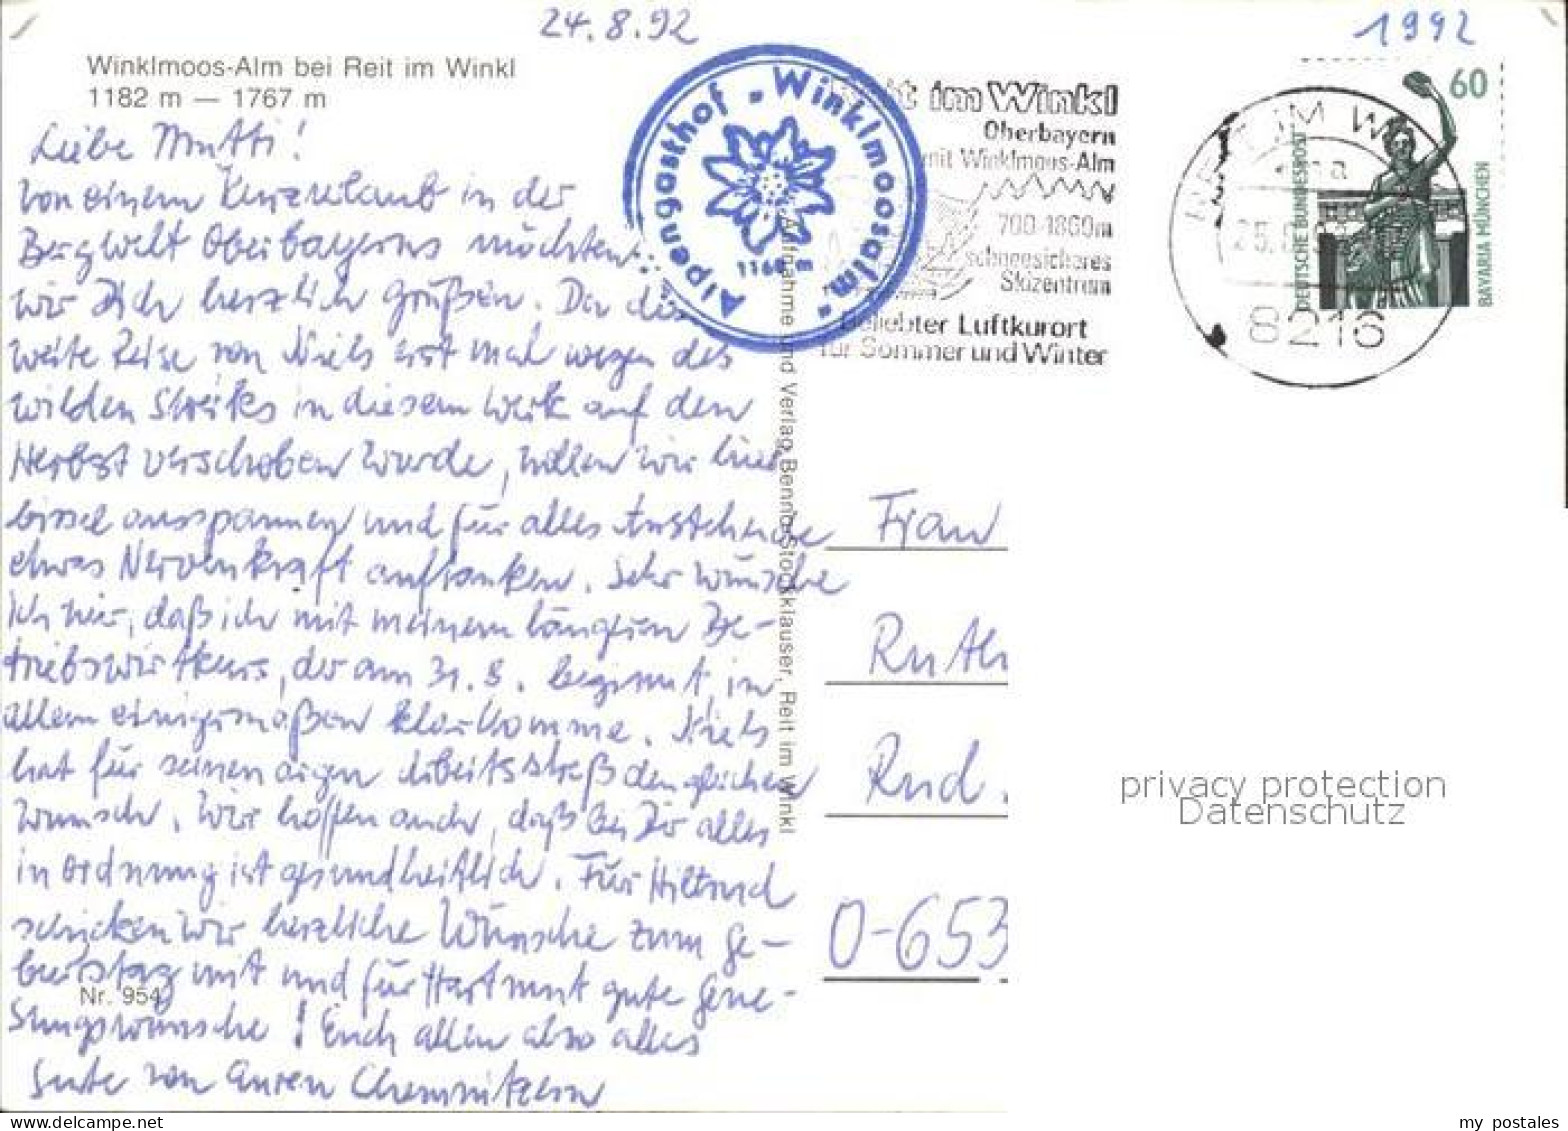 24.8.92
1992
Winklmoos-Alm bei Reit im Winkl
1182 m — 1767 m
Liebe Mutti!
von einem Kurzurlaub in der
Bergwelt Oberbayerns möchten
wir Dich herzlich grüßen. Da die
weite Reise von Niels erst mal wegen des
wilden Streiks in diesem Werk auf den
Herbst verschoben wurde, wollen wir hier
bissel ausspannen und für alles Anstehende
etwas Nervenkraft auftanken. Sehr wünsche
ich mir, daß ich mit meinem längeren Be-
triebswirtkurs, der am 31.8. beginnt, in
allem einigermaßen klarkomme. Niels
hat für seinen argen Arbeitsstreß den gleichen
Wunsch. Wir hoffen auch, daß bei Dir alles
in Ordnung ist gesundheitlich. Für Hiltrud
schicken wir herzliche Wünsche zum Ge-
burtstag mit und für Hartmut gute Gene-
sungswünsche! Euch allen also alles
Gute von Euren Chemnitzern
Nr. 954
Alpengasthof "Winklmoosalm"
1160 m
Aufnahme und Verlag Benno Stockklauser, Reit im Winkl
im Winkl
Oberbayern
mit Winklmoos-Alm
700-1860m
schneesicheres
Skizentrum
Beliebter Luftkurort
für Sommer und Winter
REIT IM WI
8216
60
DEUTSCHE BUNDESPOST
BAVARIA MÜNCHEN
Frau
Ruth
Rud.
O-653
privacy protection
Datenschutz
www.delcampe.net
my_postales